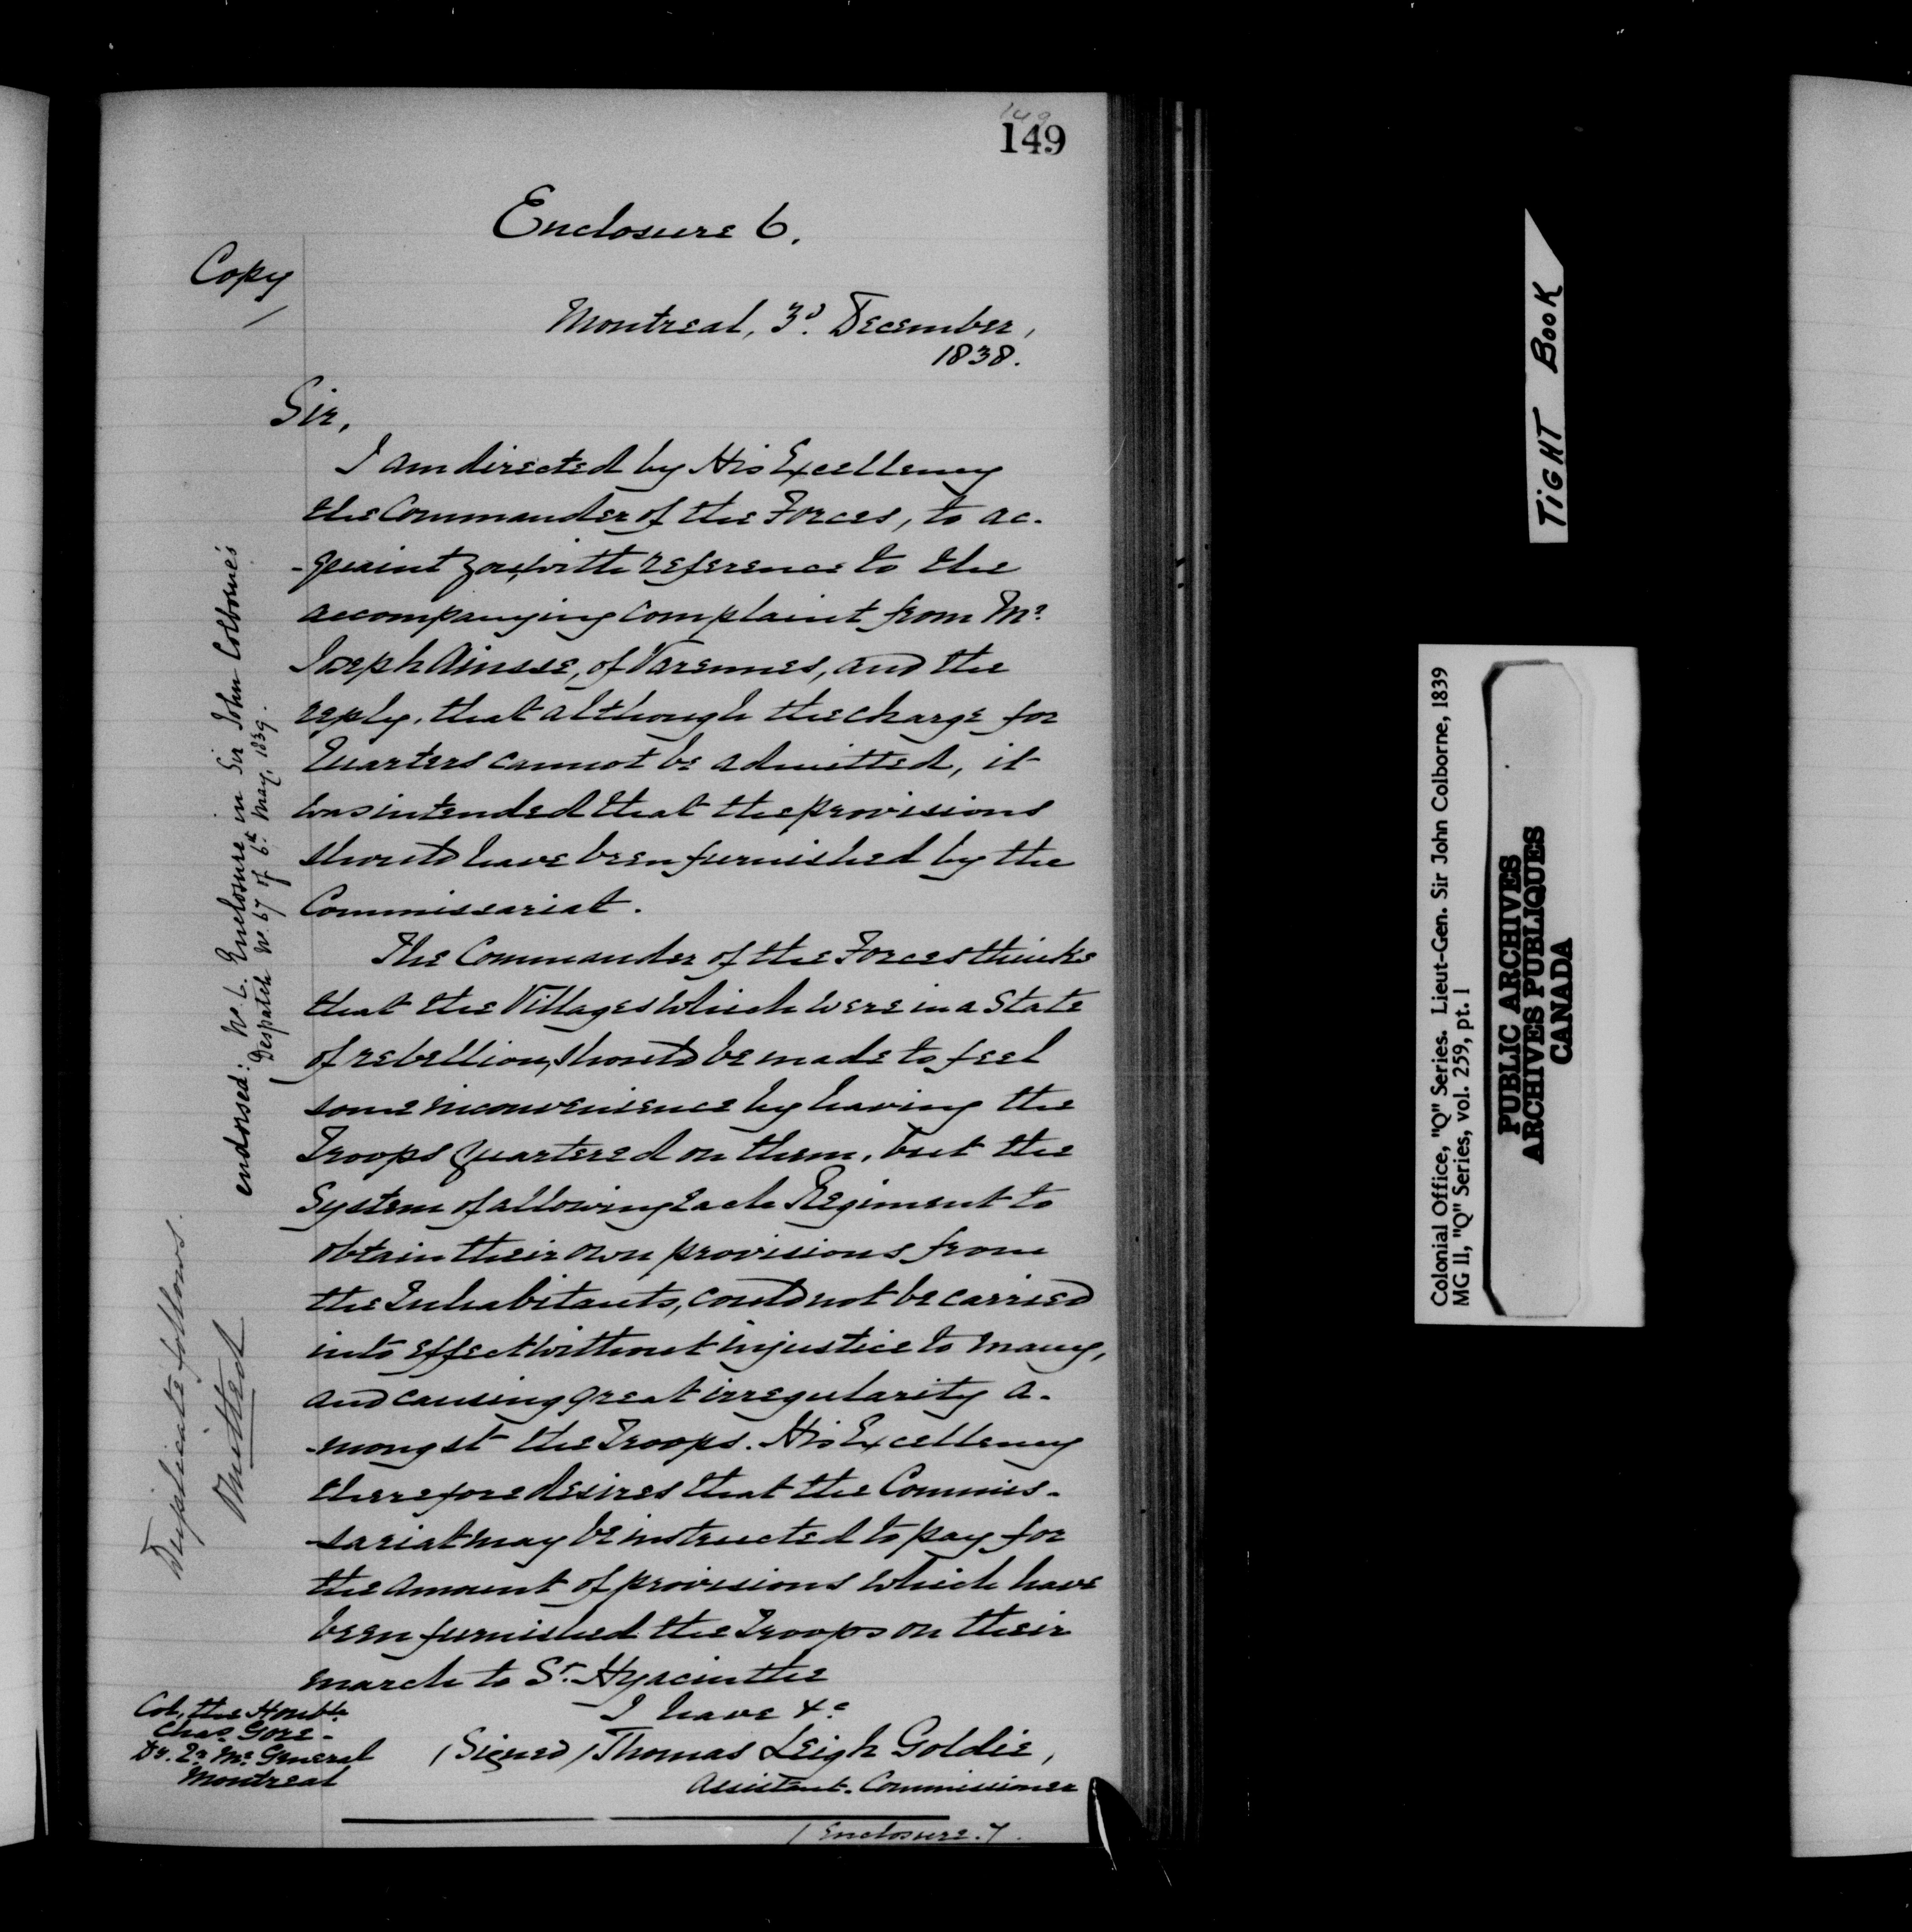 149
149
Enclosure 6.
Copy
Montreal, 3d. December,
1838.
Sir,
I am directed by His Excellency
the Commander of the Forces, to ac-
-quaint you, with reference to the
accompanying complaint from Mr.
Joseph Ainsse, of Varennes, and the
reply, that although the charge for
Quarters cannot be admitted, it
was intended that the provisions
should have been furnished by the
Commissariat.
The Commander of the Forces thinks
that the Villages which were in a State
of rebellion, should be made to feel
some inconvenience by having the
Troops quartered on them, but the
System of allowing each Regiment to
obtain their own provisions from
the Inhabitants, could not be carried
into effect without injustice to many,
and causing great irregularity a-
-mongst the Troops. His Excellency
therefore desires that the Commis-
-sariat may be instructed to pay for
the amount of provisions which have
been furnished the Troops on their
march to St. Hyacinthe
I have &c
(Signed) Thomas Leigh Goldie,
Assistant. Commissioner
Col. the Honble
Chas. Gore-
Dy. Qr. Mr. General
Montreal
(Enclosure. 7.
endorsed: No. 6. Enclosure in Sir John Colborne's
Despatch No. 67 of 6th May, 1839.
Duplicate follows.
Omitted
TIGHT BOOK
Colonial Office, "Q" Series. Lieut-Gen. Sir John Colborne, 1839
MG 11, "Q" Series, vol. 259, pt. 1
PUBLIC ARCHIVES
ARCHIVES PUBLIQUES
CANADA